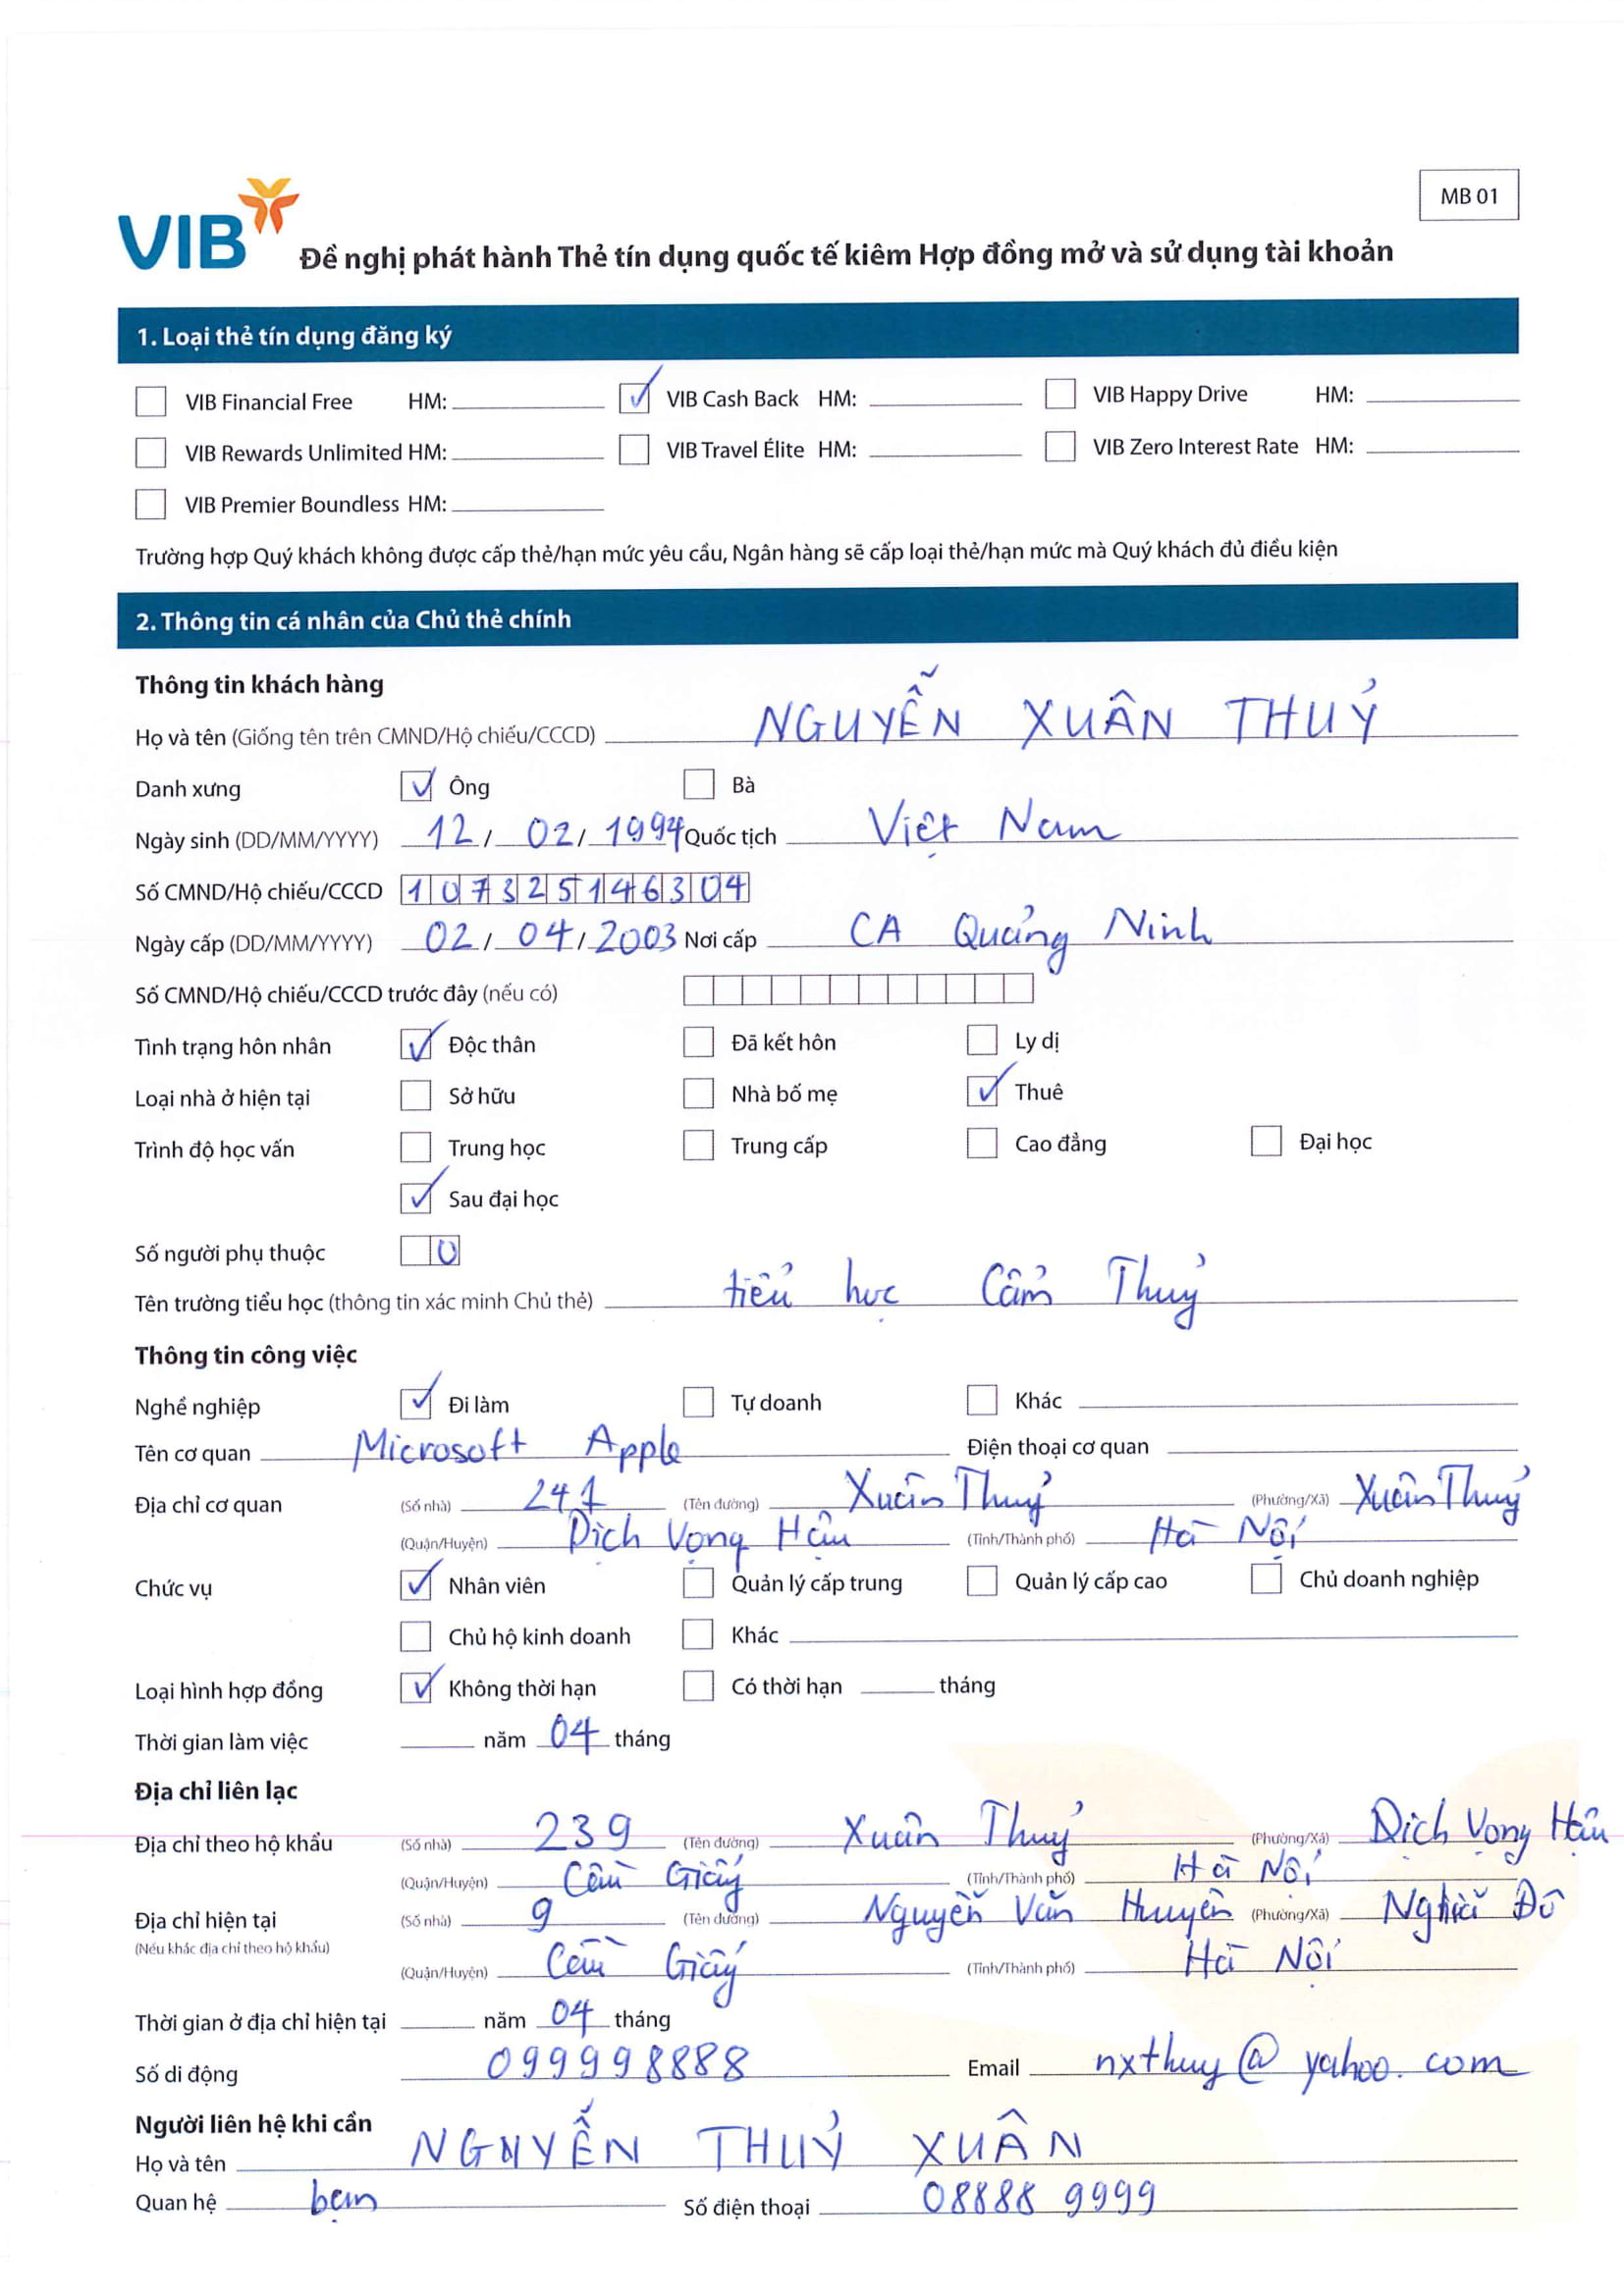 MB 01
VIB
Đề nghị phát hành Thẻ tín dụng quốc tế kiêm Hợp đồng mở và sử dụng tài khoản
1. Loại thẻ tín dụng đăng ký
VIB Financial Free HM: ✓ VIB Cash Back HM: VIB Happy Drive HM:
VIB Rewards Unlimited HM: VIB Travel Élite HM: VIB Zero Interest Rate HM:
VIB Premier Boundless HM:
Trường hợp Quý khách không được cấp thẻ/hạn mức yêu cầu, Ngân hàng sẽ cấp loại thẻ/hạn mức mà Quý khách đủ điều kiện
2. Thông tin cá nhân của Chủ thẻ chính
Thông tin khách hàng
Họ và tên (Giống tên trên CMND/Hộ chiếu/CCCD) NGUYỄN XUÂN THUỶ
Danh xưng ✓ Ông Bà
Ngày sinh (DD/MM/YYYY) 12 / 02 / 1994 Quốc tịch Việt Nam
Số CMND/Hộ chiếu/CCCD 107325146304
Ngày cấp (DD/MM/YYYY) 02 / 04 / 2003 Nơi cấp CA Quảng Ninh
Số CMND/Hộ chiếu/CCCD trước đây (nếu có)
Tình trạng hôn nhân ✓ Độc thân Đã kết hôn Ly dị
Loại nhà ở hiện tại Sở hữu Nhà bố mẹ ✓ Thuê
Trình độ học vấn Trung học Trung cấp Cao đẳng Đại học
✓ Sau đại học
Số người phụ thuộc 0
Tên trường tiểu học (thông tin xác minh Chủ thẻ) tiểu học Cẩm Thuỷ
Thông tin công việc
Nghề nghiệp ✓ Đi làm Tự doanh Khác
Tên cơ quan Microsoft Apple Điện thoại cơ quan
Địa chỉ cơ quan (Số nhà) 241 (Tên đường) Xuân Thuỷ (Phường/Xã) Xuân Thuỷ
(Quận/Huyện) Dịch Vọng Hậu (Tỉnh/Thành phố) Hà Nội
Chức vụ ✓ Nhân viên Quản lý cấp trung Quản lý cấp cao Chủ doanh nghiệp
Chủ hộ kinh doanh Khác
Loại hình hợp đồng ✓ Không thời hạn Có thời hạn tháng
Thời gian làm việc năm 04 tháng
Địa chỉ liên lạc
Địa chỉ theo hộ khẩu (Số nhà) 239 (Tên đường) Xuân Thuỷ (Phường/Xã) Dịch Vọng Hậu
(Quận/Huyện) Cầu Giấy (Tỉnh/Thành phố) Hà Nội
Địa chỉ hiện tại (Số nhà) 9 (Tên đường) Nguyễn Văn Huyên (Phường/Xã) Nghĩa Đô
(Nếu khác địa chỉ theo hộ khẩu)
(Quận/Huyện) Cầu Giấy (Tỉnh/Thành phố) Hà Nội
Thời gian ở địa chỉ hiện tại năm 04 tháng
Số di động 099998888 Email nxthuy@yahoo.com
Người liên hệ khi cần
Họ và tên NGUYỄN THUỶ XUÂN
Quan hệ bạn Số điện thoại 08888 9999